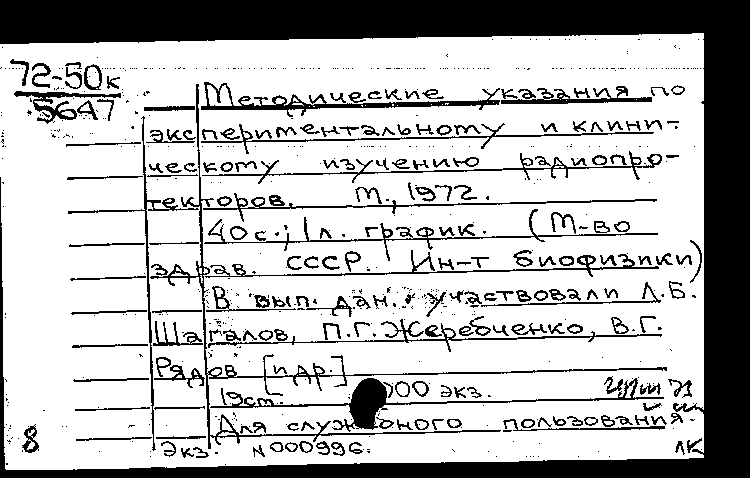 72-50к
5647
Методические указания по
экспериментальному и клини-
ческому изучению радиопро-
текторов. М., 1972.
40 с.; 1 л. график. (М-во
здрав. СССР. Ин-т биофизики)
В вып. дан. участвовали Л.Б.
Шагалов, П.Г. Жеребченко, В.Г.
Рядов [и др.]
19 см. 000 экз.
Для служ оного пользования.
8 Экз. N 000996. ЛК